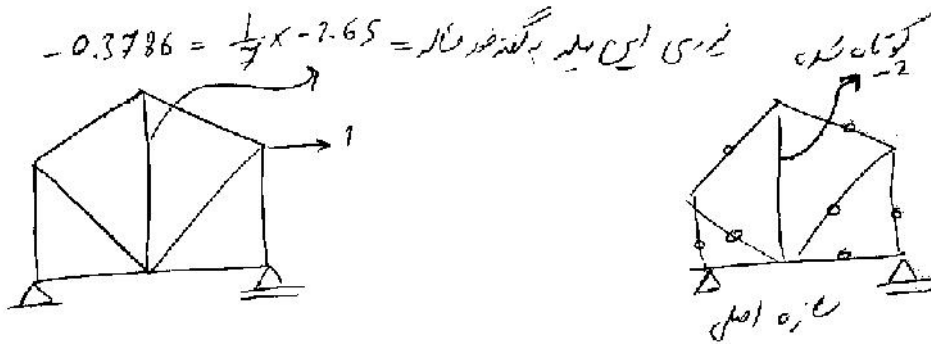 -0.3786 = 1/7 x -2.65 = نیروی این میله به گفته خود مساله
کوتاه شده
-2
1
سازه اصلی